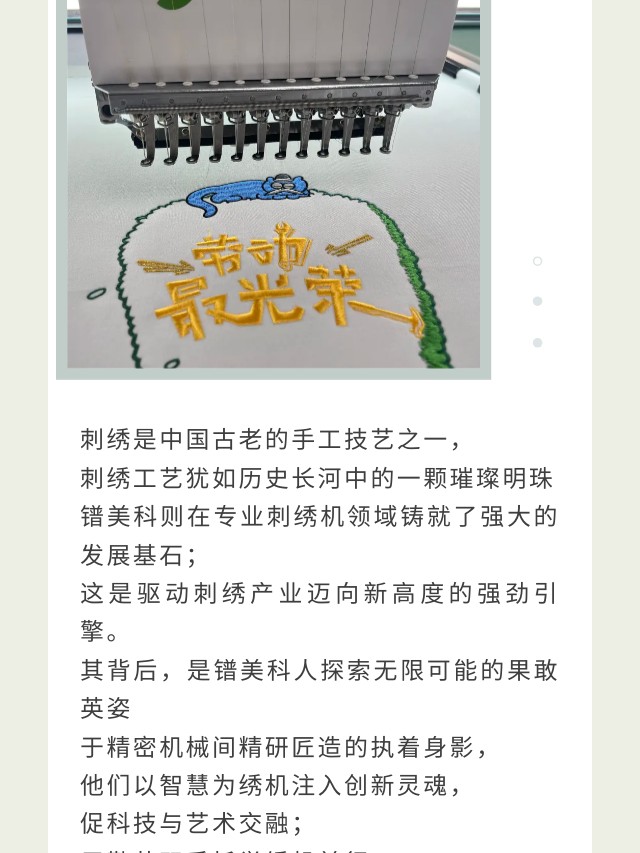 劳动
最光荣
刺绣是中国古老的手工技艺之一，
刺绣工艺犹如历史长河中的一颗璀璨明珠
镨美科则在专业刺绣机领域铸就了强大的
发展基石；
这是驱动刺绣产业迈向新高度的强劲引
擎。
其背后，是镨美科人探索无限可能的果敢
英姿
于精密机械间精研匠造的执着身影，
他们以智慧为绣机注入创新灵魂，
促科技与艺术交融；